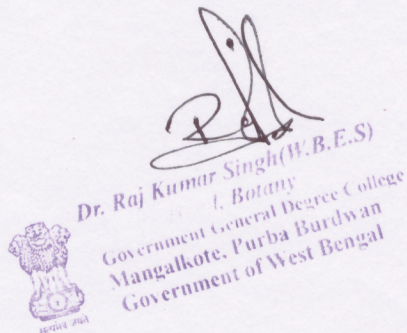 Dr. Raj Kumar Singh(W.B.E.S)
Botany
Government General Degree College
Mangalkote, Purba Burdwan
Government of West Bengal